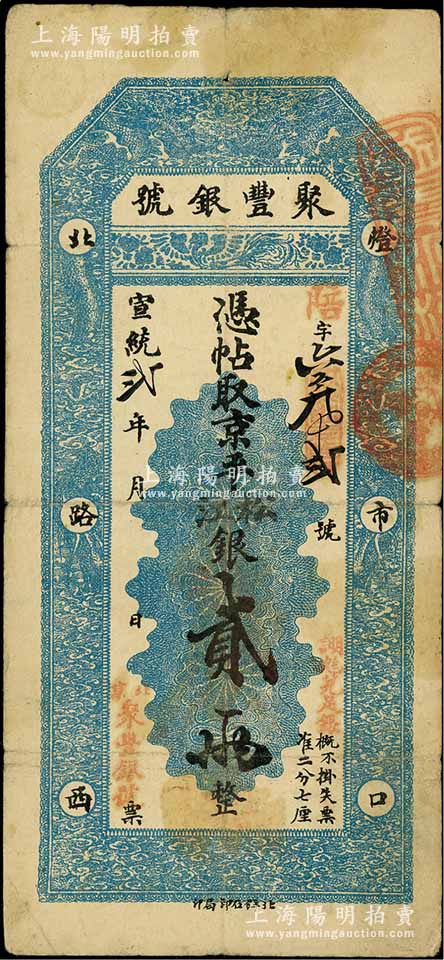 上海陽明拍賣
www.yangmingauction.com
聚豐銀號
燈市口
北路西
字
號
憑帖取京平松江銀貳兩整
宣統貳年 月 日
概不掛失票
准二分七厘
聚豐銀號
票
上海陽明拍賣
www.yangmingauction.com
上海陽明拍賣
www.yangmingauction.com